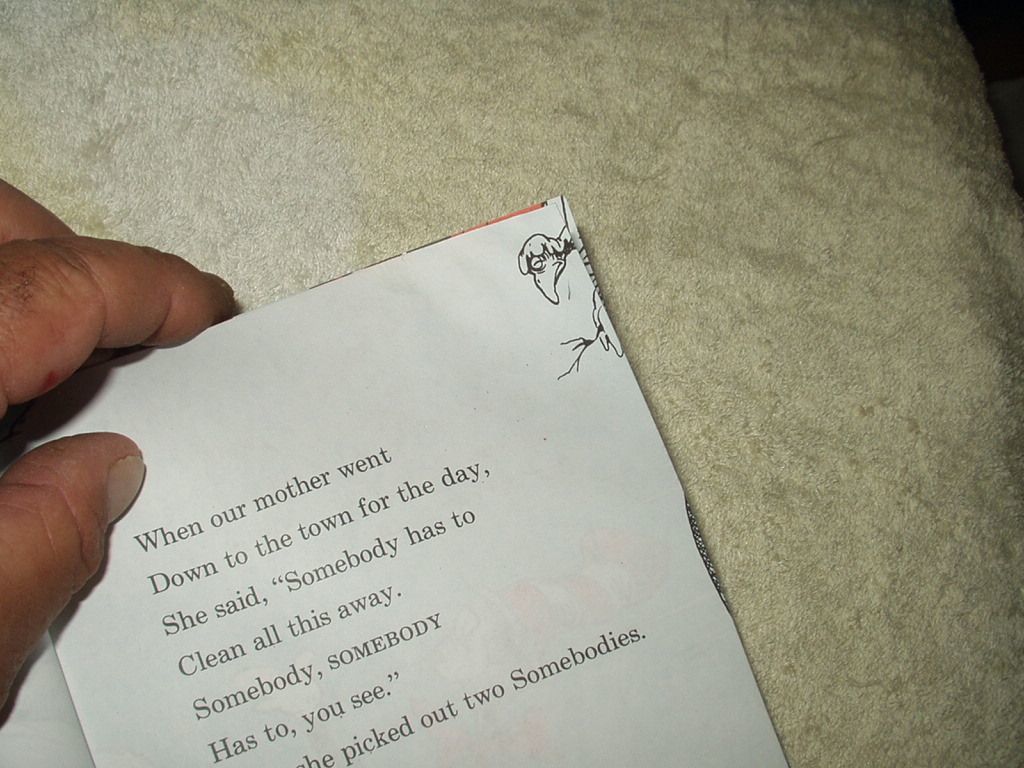 When our mother went
Down to the town for the day,
She said, “Somebody has to
Clean all this away.
Somebody, SOMEBODY
Has to, you see.”
she picked out two Somebodies.